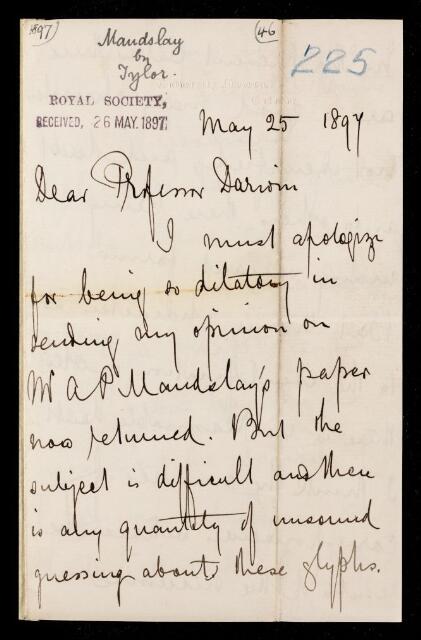 1897)
(46)
Mandslay
by
Tylor.
225
ROYAL SOCIETY,
RECEIVED, 26 MAY.1897.
May 25 1897
Dear Professor Darwin
I must apologize
for being so dilatory in
sending my opinion on
Mr A P Mandslay's paper
now returned. But the
subject is difficult and there
is any quantity of unsound
guessing about these glyphs.